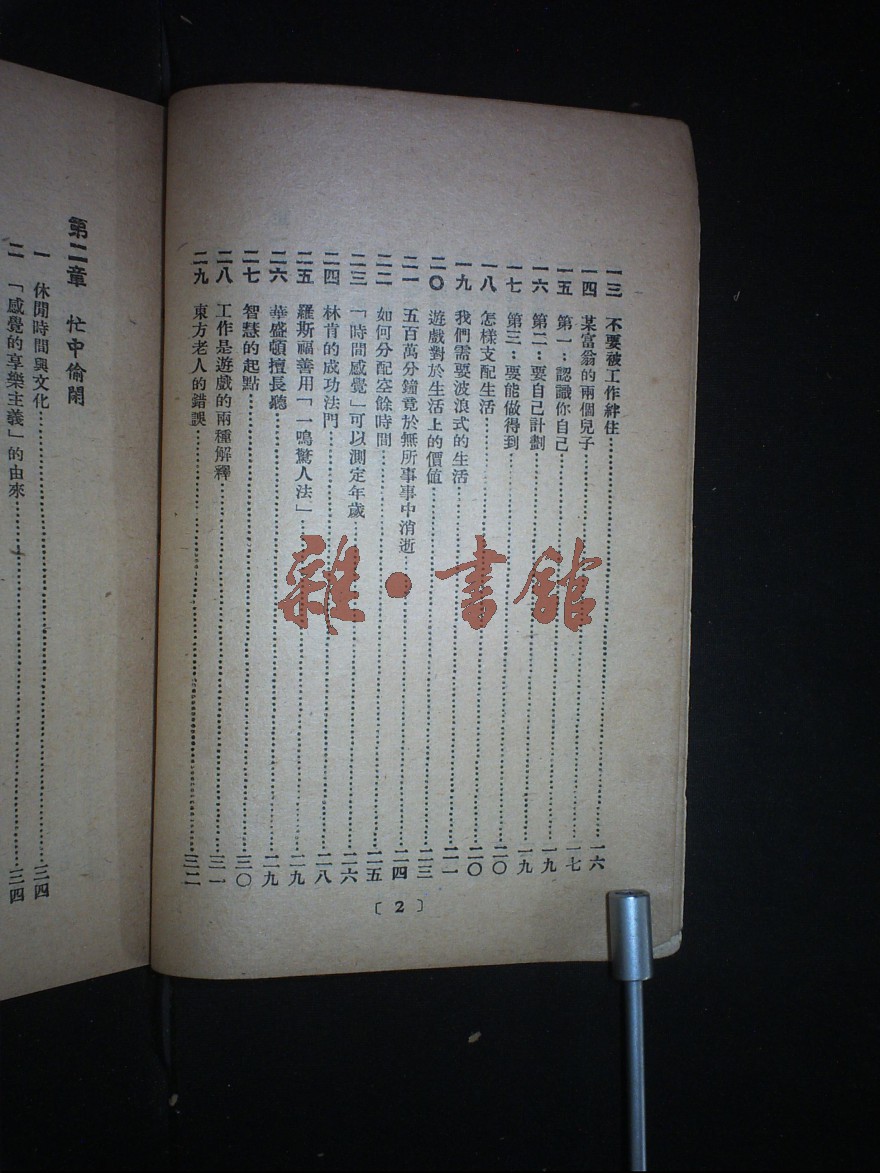 一三　不要被工作絆住……一六
一四　某富翁的兩個兒子……一七
一五　第一：認識你自己……一七
一六　第二：要自己計劃……一九
一七　第三：要能做得到……一九
一八　怎樣支配生活……二〇
一九　我們需要波浪式的生活……二〇
二〇　遊戲對於生活上的價值……二一
二一　五百萬分鐘竟於無所事事中消逝……二三
二二　如何分配空餘時間……二四
二三　「時間感覺」可以測定年歲……二五
二四　林肯的成功法門……二六
二五　羅斯福善用「一鳴驚人法」……二八
二六　華盛頓擅長聽……二九
二七　智慧的起點……二九
二八　工作是遊戲的兩種解釋……三〇
二九　東方老人的錯誤……三一
三二
〔2〕
第二章　忙中偷閑
一　休閒時間與文化……三四
二　「感覺的享樂主義」的由來……三四
雜·書館